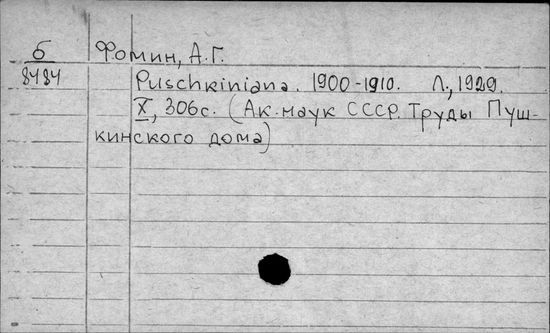 б Фомин, А.Г.
8484 Puschkiniana. 1900-1910. Л., 1929.
X, 306с. (Ак. наук СССР. Труды Пуш-
кинского дома)